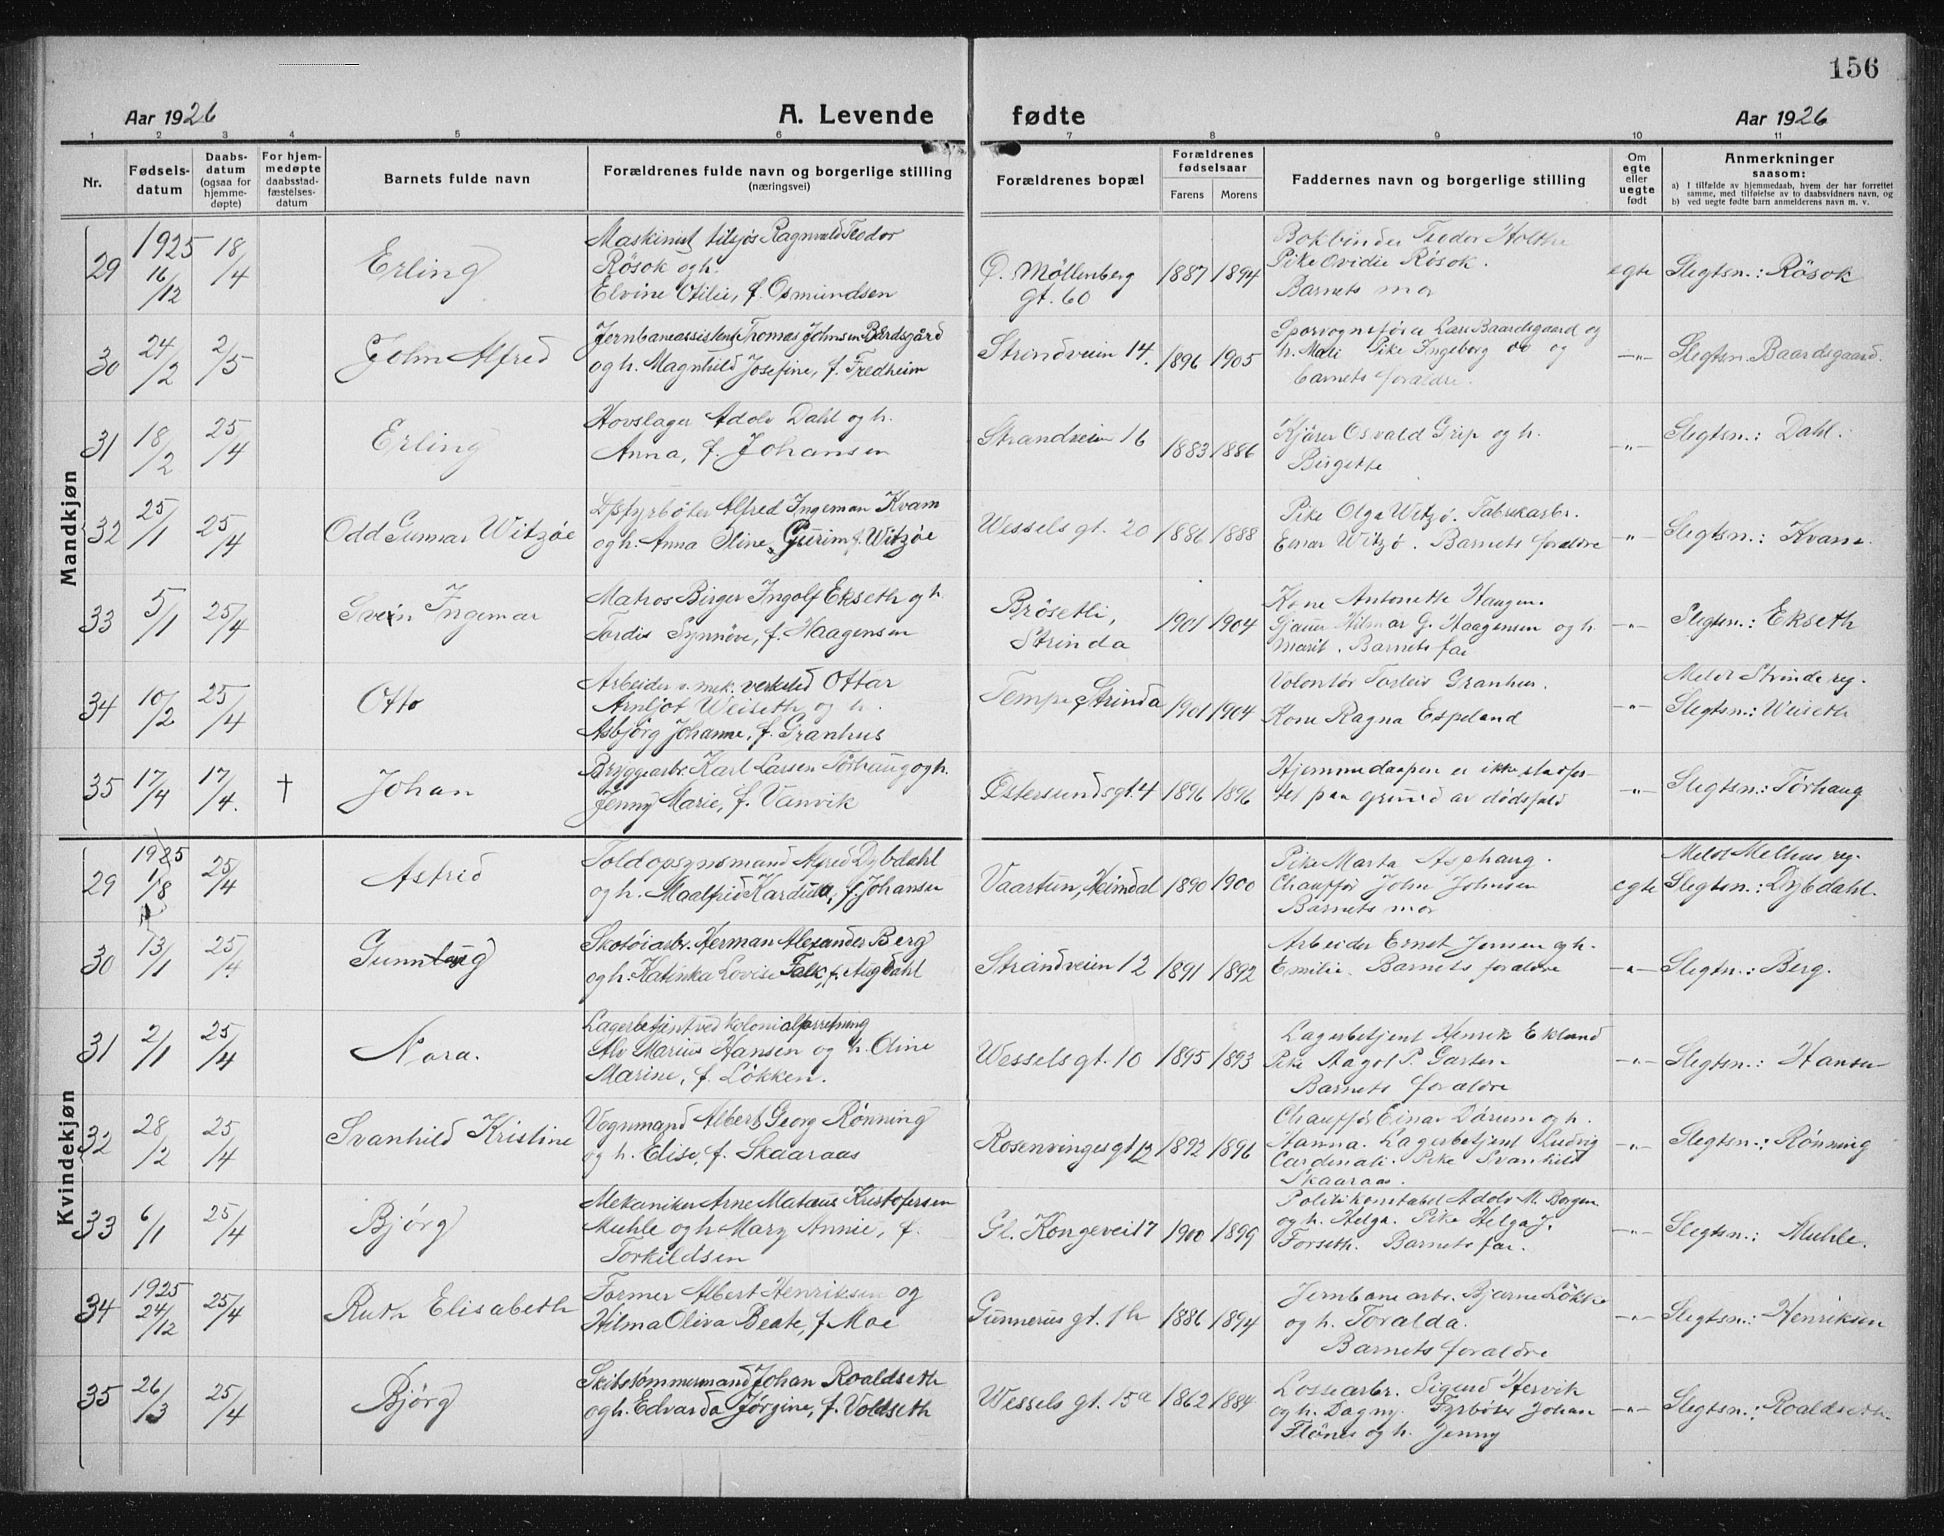 156
Aar 1926 A. Levende fødte Aar 1926
1 2 3 4 5 6 7 8 9 10 11
Nr. Fødsels-datum Daabs-datum (ogsaa for hjemme-døpte) For hjem-medøpte daabsstad-fæstelses-datum Barnets fulde navn Forældrenes fulde navn og borgerlige stilling (næringsvei) Forældrenes bopæl Forældrenes fødselsaar Farens Morens Faddernes navn og borgerlige stilling Om egte eller uegte født Anmerkninger saasom:
a) I tilfælde av hjemmedaab, hvem der har forrettet samme, med tilføielse av to daabsvidners navn, og
b) ved uegte fødte barn anmelderens navn m. v.
Mandkjøn
29 1925 16/12 18/4 Erling Maskinist tilsjøs Ragnvald Teodor
Røsok og h.
Elvine Otilie, f. Osmundsen
Ø. Møllenberg
gt. 60
1887 1894
Bokbinder Teodor Holthe
Pike Ovidie Røsok.
Barnets mor
egte Slegtsn.: Røsok
30 24/2 2/5 John Alfred Jernbaneassistent Thomas Johnsen Bårdsgård
og h. Magnhild Josefine, f. Fredheim
Strandveien 14. 1896 1905
Sporvognsfører Lars Baardsgaard og
h. Mali Pike Ingeborg do og
barnets forældre.
-"- Slegtsn. Baardsgaard.
31 18/2 25/4 Erling Hovslager Adolv Dahl og h.
Anna, f. Johansen
Strandveien 16 1883 1886
Kjører Osvald Grip og h.
Birgitte
-"- Slegtsn.: Dahl.
32 25/1 25/4 Odd Gunnar Witzøe Alfred Ingeman Kvam
og h. Anna Oline Gurine f. Witzøe
Wessels gt. 20 1886 1888
Pike Olga Witzø. Fabrikarbr.
Einar Witzø. Barnets forældre
-"- Slegtsn.: Kvam.
33 5/1 25/4 Svein Ingemar Matros Birger Ingolf Ekseth og h
Tordis Synnøve, f. Haagensen
Brøsetli,
Strinda
1901 1904
Kone Antonette Haugen.
Hilmar G. Haagensen og h.
Marit. Barnets far
-"- Slegtsn.: Ekseth
34 10/2 25/4 Otto Arbeider v. mek. verksted Ottar
Arnljot Weiseth og h.
Asbjørg Johanne, f. Granhus
Tempe Strinda 1901 1904
Volontør Torleiv Granhus.
Kone Ragna Espeland
-"- Meldt Strinda reg.
Slegtsn.: Weiseth
35 17/4 17/4. † Johan Bryggearbr. Karl Larsen Tørhaug og h.
Jenny Marie, f. Vanvik
Østersundsgt. 4 1896 1896
Hjemmedaapen er ikke stadfæs-
tet paa grund av dødsfald
-"- Slegtsn.: Tørhaug
Kvindekjøn
29 1925 1/8 25/4 Astrid Toldopsynsmand Alfred Dybdahl
og h. Maalfrid Kardine, f. Johansen
Vaartun, Heimdal 1890 1900
Pike Marta Asphaug.
Chauffør John Johnsen
Barnets mor
egte Meldt Melhus reg.
Slegtsn.: Dybdahl.
30 13/1 25/4 Gunnlaug Skotøiarbr. Herman Alexander Berg
og h. Katinka Lovise Falk, f. Augdahl
Strandveien 12 1891 1892
Arbeider Ernst Jensen og h.
Emilie. Barnets forældre
-"- Slegtsn.: Berg.
31 2/1 25/4 Nora. Lagerbetjent ved kolonialforretning
Alv Marius Hansen og h. Oline
Marine, f. Løkken.
Wessels gt. 10 1895 1893
Lagerbetjent Henrik Eklund
Pike Aagot P. Garten
Barnets forældre
-"- Slegtsn.: Hansen
32 28/2 25/4 Svanhild Kristine Vognmand Albert Georg Rønning
og h. Elise, f. Skaaraas
Rosenvinges gt 12 1892 1896
Chauffør Einar Dørum og h.
Hanna. Lagerbetjent Ludvig
Cardinali. Pike Svanhild
Skaaraas.
-"- Slegtsn.: Rønning
33 6/1 25/4 Bjørg Mekaniker Arne Mataus Kristofersen
Muhle og h Mary Annie, f.
Torkildsen
Gl. Kongevei 17 1900 1899
Politikonstabel Adolv M. Bergen
og h. Helga. Pike Helga J.
Forseth. Barnets far.
-"- Slegtsn.: Muhle.
34 1925 24/12 25/4 Ruth Elisabeth Former Albert Henriksen og
Hilma Oliva Beate, f. Moe
Gunnerus gt. 1 h 1886 1894
Jernbanearbr. Bjarne Løkke
og h. Toralda.
Barnets forældre
-"- Slegtsn.: Henriksen
35 26/3 25/4 Bjørg Skibstømmermand Johan Roaldseth
og h. Edvarda Jørgine, f. Voldseth
Wessels gt. 15a 1862 1884
Lossearbr. Sigurd Hervik
og h. Dagny. Fyrbøter Johan
Flønes og h. Jenny
-"- Slegtsn.: Roaldseth.